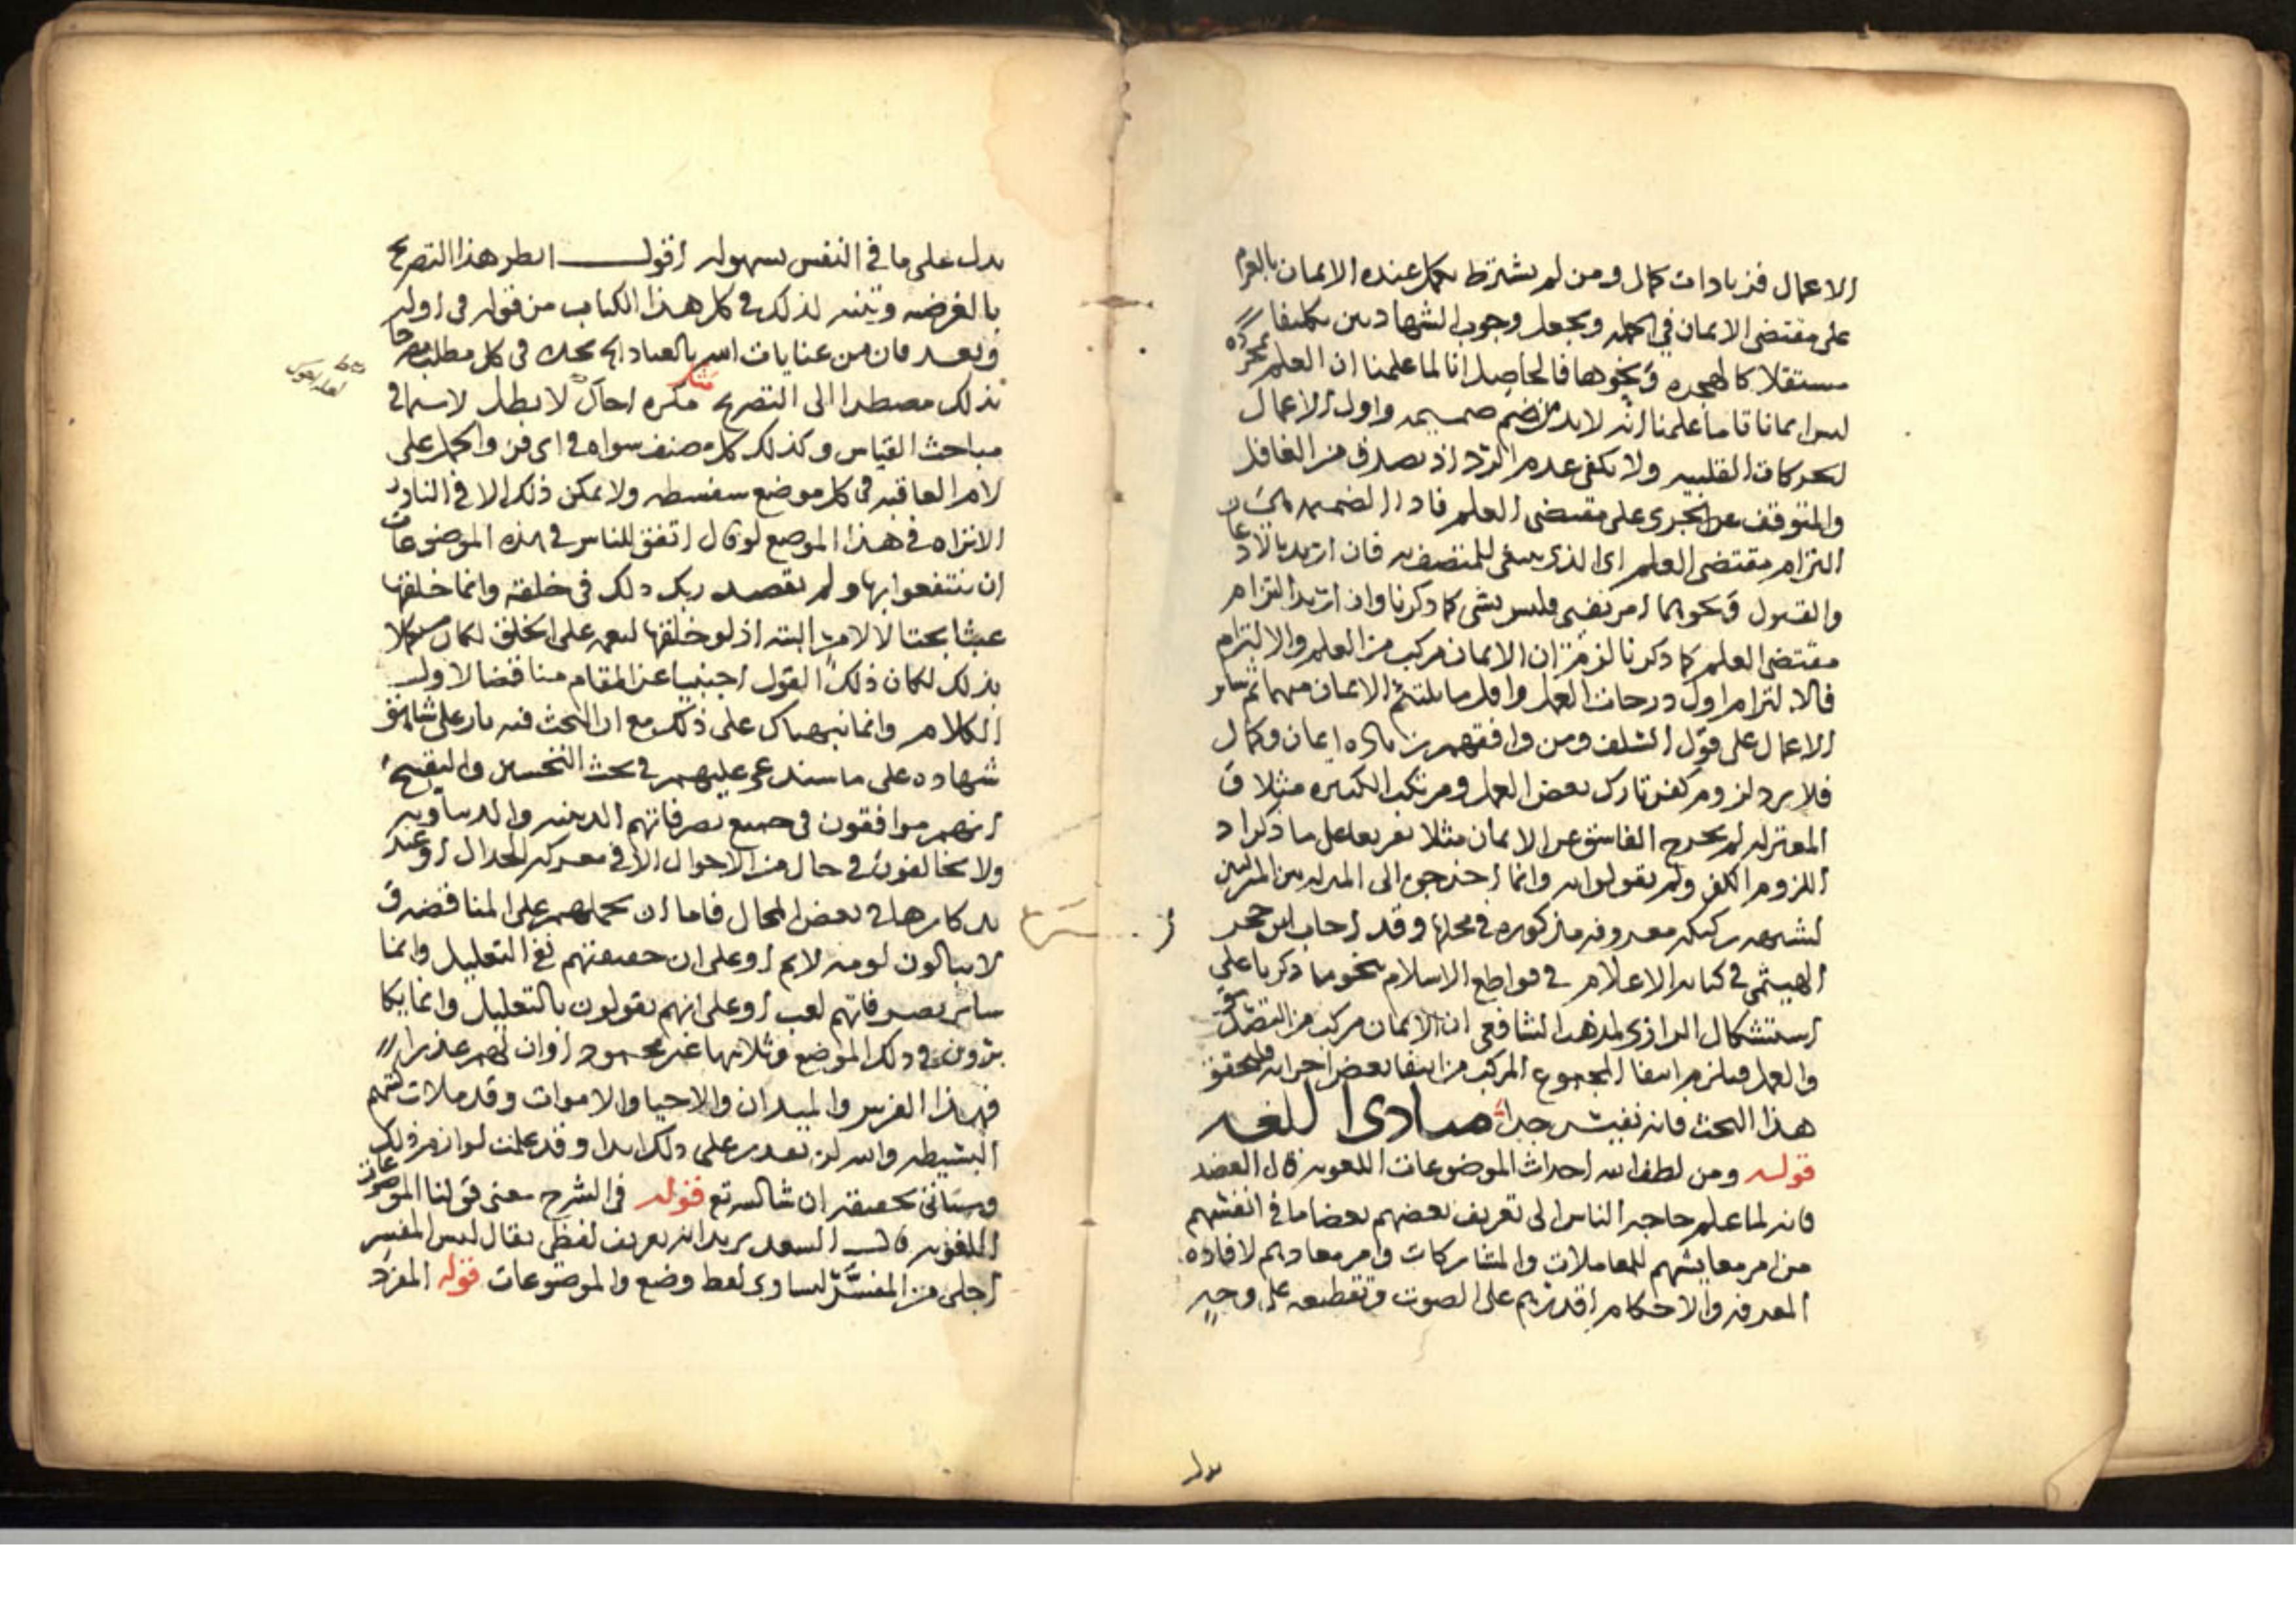 الاعمال فزيادات كمال ومن لم يشترط يكمل عنده الايمان بالعزم
على مقتضى الايمان في الجمله ويجعل وجوب الشهادتين تكليفا
مستقلا كالهجره ونحوها فالحاصل انا لما علمنا ان العلم بمجرده
ليس ايمانا تاما علمنا انه لابد من ضم ضميمه واول الاعمال
الحركات القلبيه ولا يكفي عدم الرد اذ يصدق من الغافل
والمتوقف عن الجرى على مقتضى العلم فاذا الضميمه هي
التزام مقتضى العلم اي الذي ينبغي للمتصف به فان اريد بالاذعان
والقبول ونحوهما امر نفسي فليس بشي كما ذكرنا وان اريد التزام
مقتضى العلم كما ذكرنا لزم ان الايمان مركب من العلم والالتزام
فالالتزام اول درجات العمل واقل ما يلتئم الايمان منهما ثم سائر
الاعمال على قول السلف ومن وافقهم زياده ايمان وكمال
فلا يرد لزوم كفر تارك بعض العمل ومرتكب الكبيره مثلا و
المعتزله لم يخرج الفاسق عن الايمان مثلا تفريعا على ما ذكر اذ
اللزوم الكفر ولم يقولوا به وانما اخرجوه الى المنزله بين المنزلتين
لشبهه ركيكه معروفه مذكوره في محلها وقد اجاب ابن حجر
الهيثمي في كتابه الاعلام في قواطع الاسلام بنحو ما ذكرنا على
استشكال الرازي لمذهب الشافعي ان الايمان مركب من التصديق
والعمل فيلزم انتفا المجموع المركب من انتفا بعض اجزائه فليحقق
هذا البحث فانه نفيس جدا مبادى اللغه
قوله ومن لطف الله احداث الموضوعات اللغويه قال العضد
فانه لما علم حاجه الناس الى تعريف بعضهم بعضا ما في انفسهم
من امر معايشهم للمعاملات والمشاركات وامر معادهم لافاده
المعرفه والاحكام اقدرهم على الصوت وتقطيعه على وجه
يدل
يدل على ما في النفس بسهوله اقول انظر هذا التصريح
بالغرضيه وتنبه لذلك في كل هذا الكتاب من قوله في اوله
وبعد فان من عنايات الله بالعباد الخ تجده في كل مطلب مصرحا
بذلك مضطرا الى التصريح مكره اخاك لا بطل لا سيما في
مباحث القياس وكذلك كل مصنف سواه في اي فن والحمل على
لام العاقبه في كل موضع سفسطه ولا يمكن ذلك الا في النادر
الا تراه في هذا الموضع لو قال اتفق للناس في هذه الموضوعات
ان ينتفعوا بها ولم يقصد ربك ذلك في خلقه وانما خلقها
عبثا بحتا لا لامر البته اذ لو خلقها لنعمه على الخلق لكان مستكملا
بذلك لكان ذلك القول اجنبيا عن المقام مناقضا لاول
الكلام وانما نبهناك على ذلك مع ان البحث فيه بار على
شهاده على ما سندعي عليهم في بحث التحسين والتقبيح
انهم موافقون في جميع تصرفاتهم الدينيه والدنياويه
ولا يخالفون في حال من الاحوال الا في معركه الجدال او عند
تذكارها في بعض المحال فاما ان تحملهم على المناقضه و
لا يبالون لومه لائم او على ان حقيقتهم نفي التعليل وانما
سائر تصرفاتهم لعب او على انهم يقولون بالتعليل وانما يكا
برون في ذلك الموضع ومثلانها غير محمود او ان لهم عذرا
فهذا الفرس والميدان والاحيا والاموات وقد ملات كتبهم
البسيطه والله لن تقدر على ذلك ابدا وقد علمت لوازم ذلك
وستاتي تحقيقه ان شا الله تع قوله في الشرح معنى قولنا الموضوعات
اللغويه قال السعد يريد انه تعريف لفظي يقال ليس المفسر
اجلى من المفسَّر لتساوى لفظ وضع والموضوعات قوله المفرد